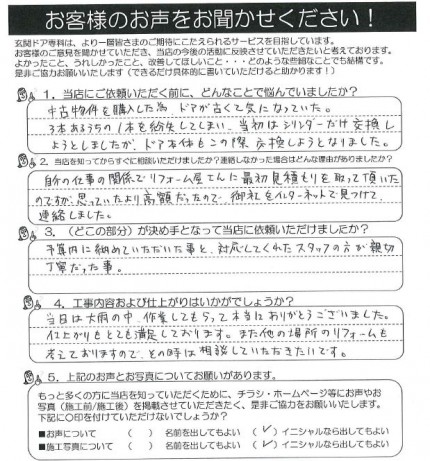 お客様のお声をお聞かせください！
玄関ドア専科は、より一層皆さまのご期待にこたえられるサービスを目指しています。
お客様のご意見を聞かせていただき、当店の今後の活動に反映させていただきたいと考えております。
よかったこと、うれしかったこと、改善してほしいこと・・・どのような些細なことでも結構です。
是非ご協力お願いいたします（できるだけ具体的に書いていただけると助かります！）
1．当店にご依頼いただく前に、どんなことで悩んでいましたか？
中古物件を購入した為 ドアが古くて気になっていた。
3本あるうちの1本を紛失してしまい、当初はシリンダーだけ交換し
ようとしましたが、ドア本体もこの際 交換しようとなりました。
2．当店を知ってからすぐに相談いただけましたか？連絡しなかった場合はどんな理由がありましたか？
自分の仕事の関係でリフォーム屋さんに最初見積もりを取って頂いた
のですが、思っていたより高額だったので、御社をインターネットで見つけて、
連絡しました。
3．（どこの部分）が決め手となって当店に依頼いただけましたか？
予算内に納めていただいた事と、対応してくれたスタッフの方が親切
丁寧だった事。
4．工事内容および仕上がりはいかがでしょうか？
当日は大雨の中、作業してもらって本当にありがとうございました。
仕上がりもとても満足しております。また他の場所のリフォームも
考えておりますので、その時は相談していただきたいです。
5．上記のお声とお写真についてお願いがあります。
もっと多くの方に当店を知っていただくために、チラシ・ホームページ等にお声やお
写真（施工前/施工後）を掲載させていただきたく、是非ご協力をお願いいたします。
下記に〇印を付けていただけないでしょうか？
■お声について （ ） 名前を出してもよい （✓）イニシャルなら出してもよい
■施工写真について （ ） 名前を出してもよい （✓）イニシャルなら出してもよい